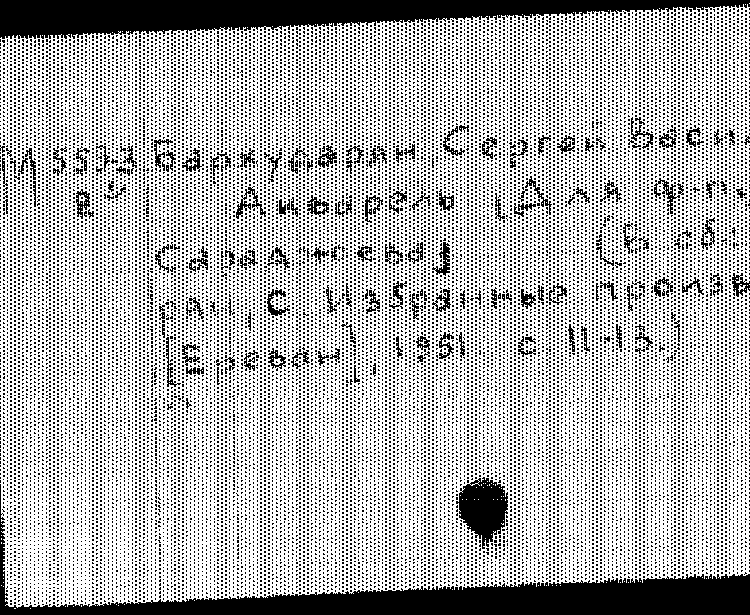 М 5573 Бархударян, Сергей Васи
Акварель. [Для ф-п.
Сараджева]. (В сб.:
рян, С. Избранные произв
[Ереван], 1951. с. 11-13.)